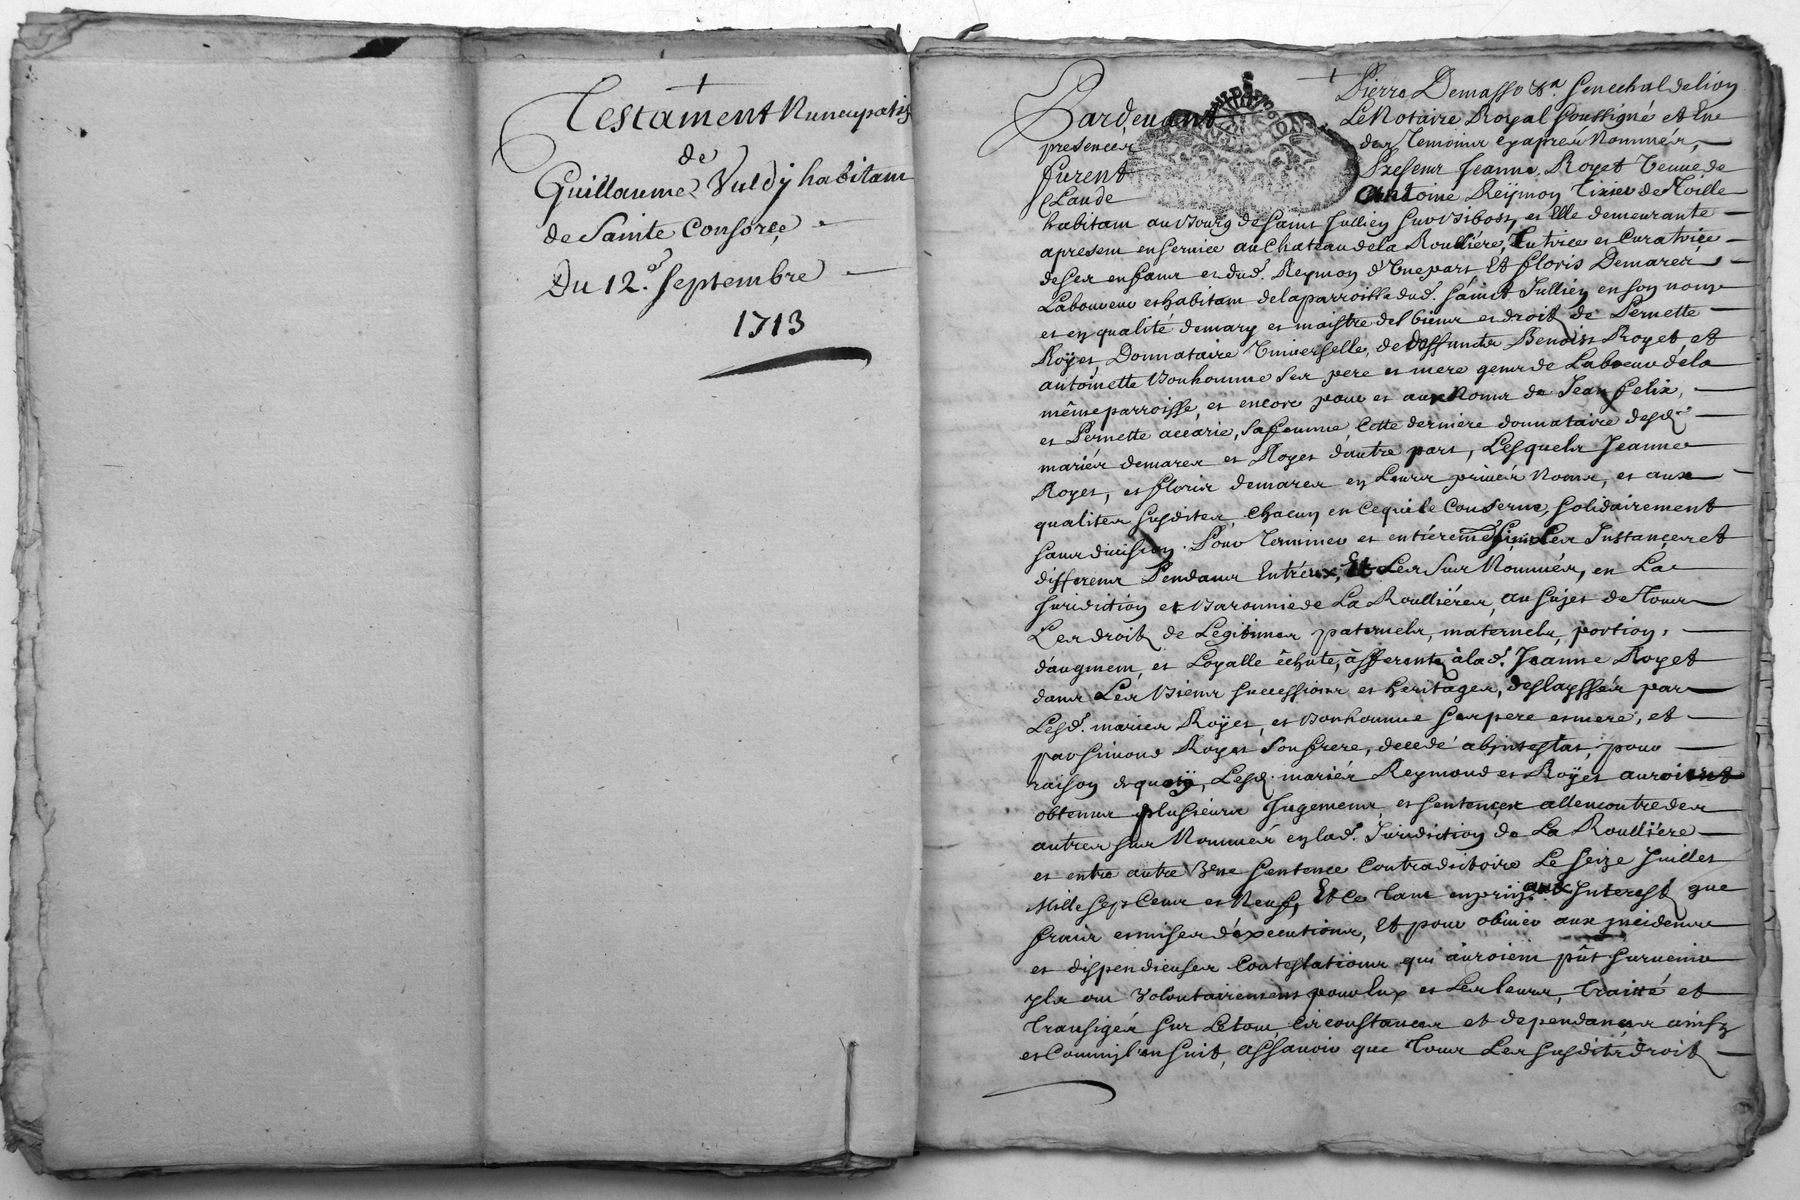 Testament Nuncupatif
de
Guillaume Vuldy habitant
de Sainte Consorce
Du 12.e Septembre
1713
Pardevant Pierre Demasso &a Senechal de lion
Le Notaire Royal Soussigné et En
presences des Temoins cy aprés Nommés,
furent Presens Jeanne Royet Veuve de
Claude Antoine Reÿmon Tixier de Toille
habitant au Bourg de Saint Jullien sur Bibost, et Elle demeurante
apresent en service au Chateau de la Roulliére, Tutrice et Curatrice
de ses enfans et dud. Reymon d'Une part Et floris Demares
Laboureur et habitant de la parroisse dud. Saint Jullien en son nom
et en qualité de mary et maistre des biens et droits de Pernette
Royet, Donnataire Universelle, de deffunts Benoist Royet et
antoinette Bonhomme ses pere et mere gens de Labeur de la
même parroisse, et encore pour et aux Noms de Jean felix,
et Pernette accarie, sa femme, Cette derniere donnataire desd.
mariés demares et Royet d'autre part, Lesquels Jeanne
Royet, et floris demares en Leurs privés Noms, et aux
qualites susdites, Chacun en Ce qui le Conserne, Solidairement
sans division. Pour Terminer et entiérement finir Les Instances et
differens Pendans Entr'eux, Et Les sus Nommés, en La
Juridiction et Baronnie de La Roulliéres, au sujet de Tous
Les droits de Legitimes paternels, maternels, portion,
d'augment, et Loyalle êchute, afferents à lad. Jeanne Royet
dans Les Biens successions et heritages, deslayssés par
Lesd. mariés Royet, et Bonhomme ses pere et mere, et
par Simond Royet Son frere, decedé abintestat, pour
raison de quoy, Lesd. mariés Reymond et Royet auroient
obtenus plusieurs Jugemens, et sentences allencontre des
autres sus Nommés en lad. Juridiction de La Roulliére
et entre autre Une sentence Contradictoire Le Seize Juillet
Mille Sept Cens et Neuf, Et Ce Tant en prinp.al Interest que
frais et mises d'éxecutions, Et pour obvier aux incidens
et dispendieuses Contestations qui auroient pût survenir
yls ont Volontairement pour lux et Les leurs, Traitté et
Transigés sur Le tout Circonstances et dependances ainsy
et Comm'il en suit, assavoir que Tous Les susdits droits